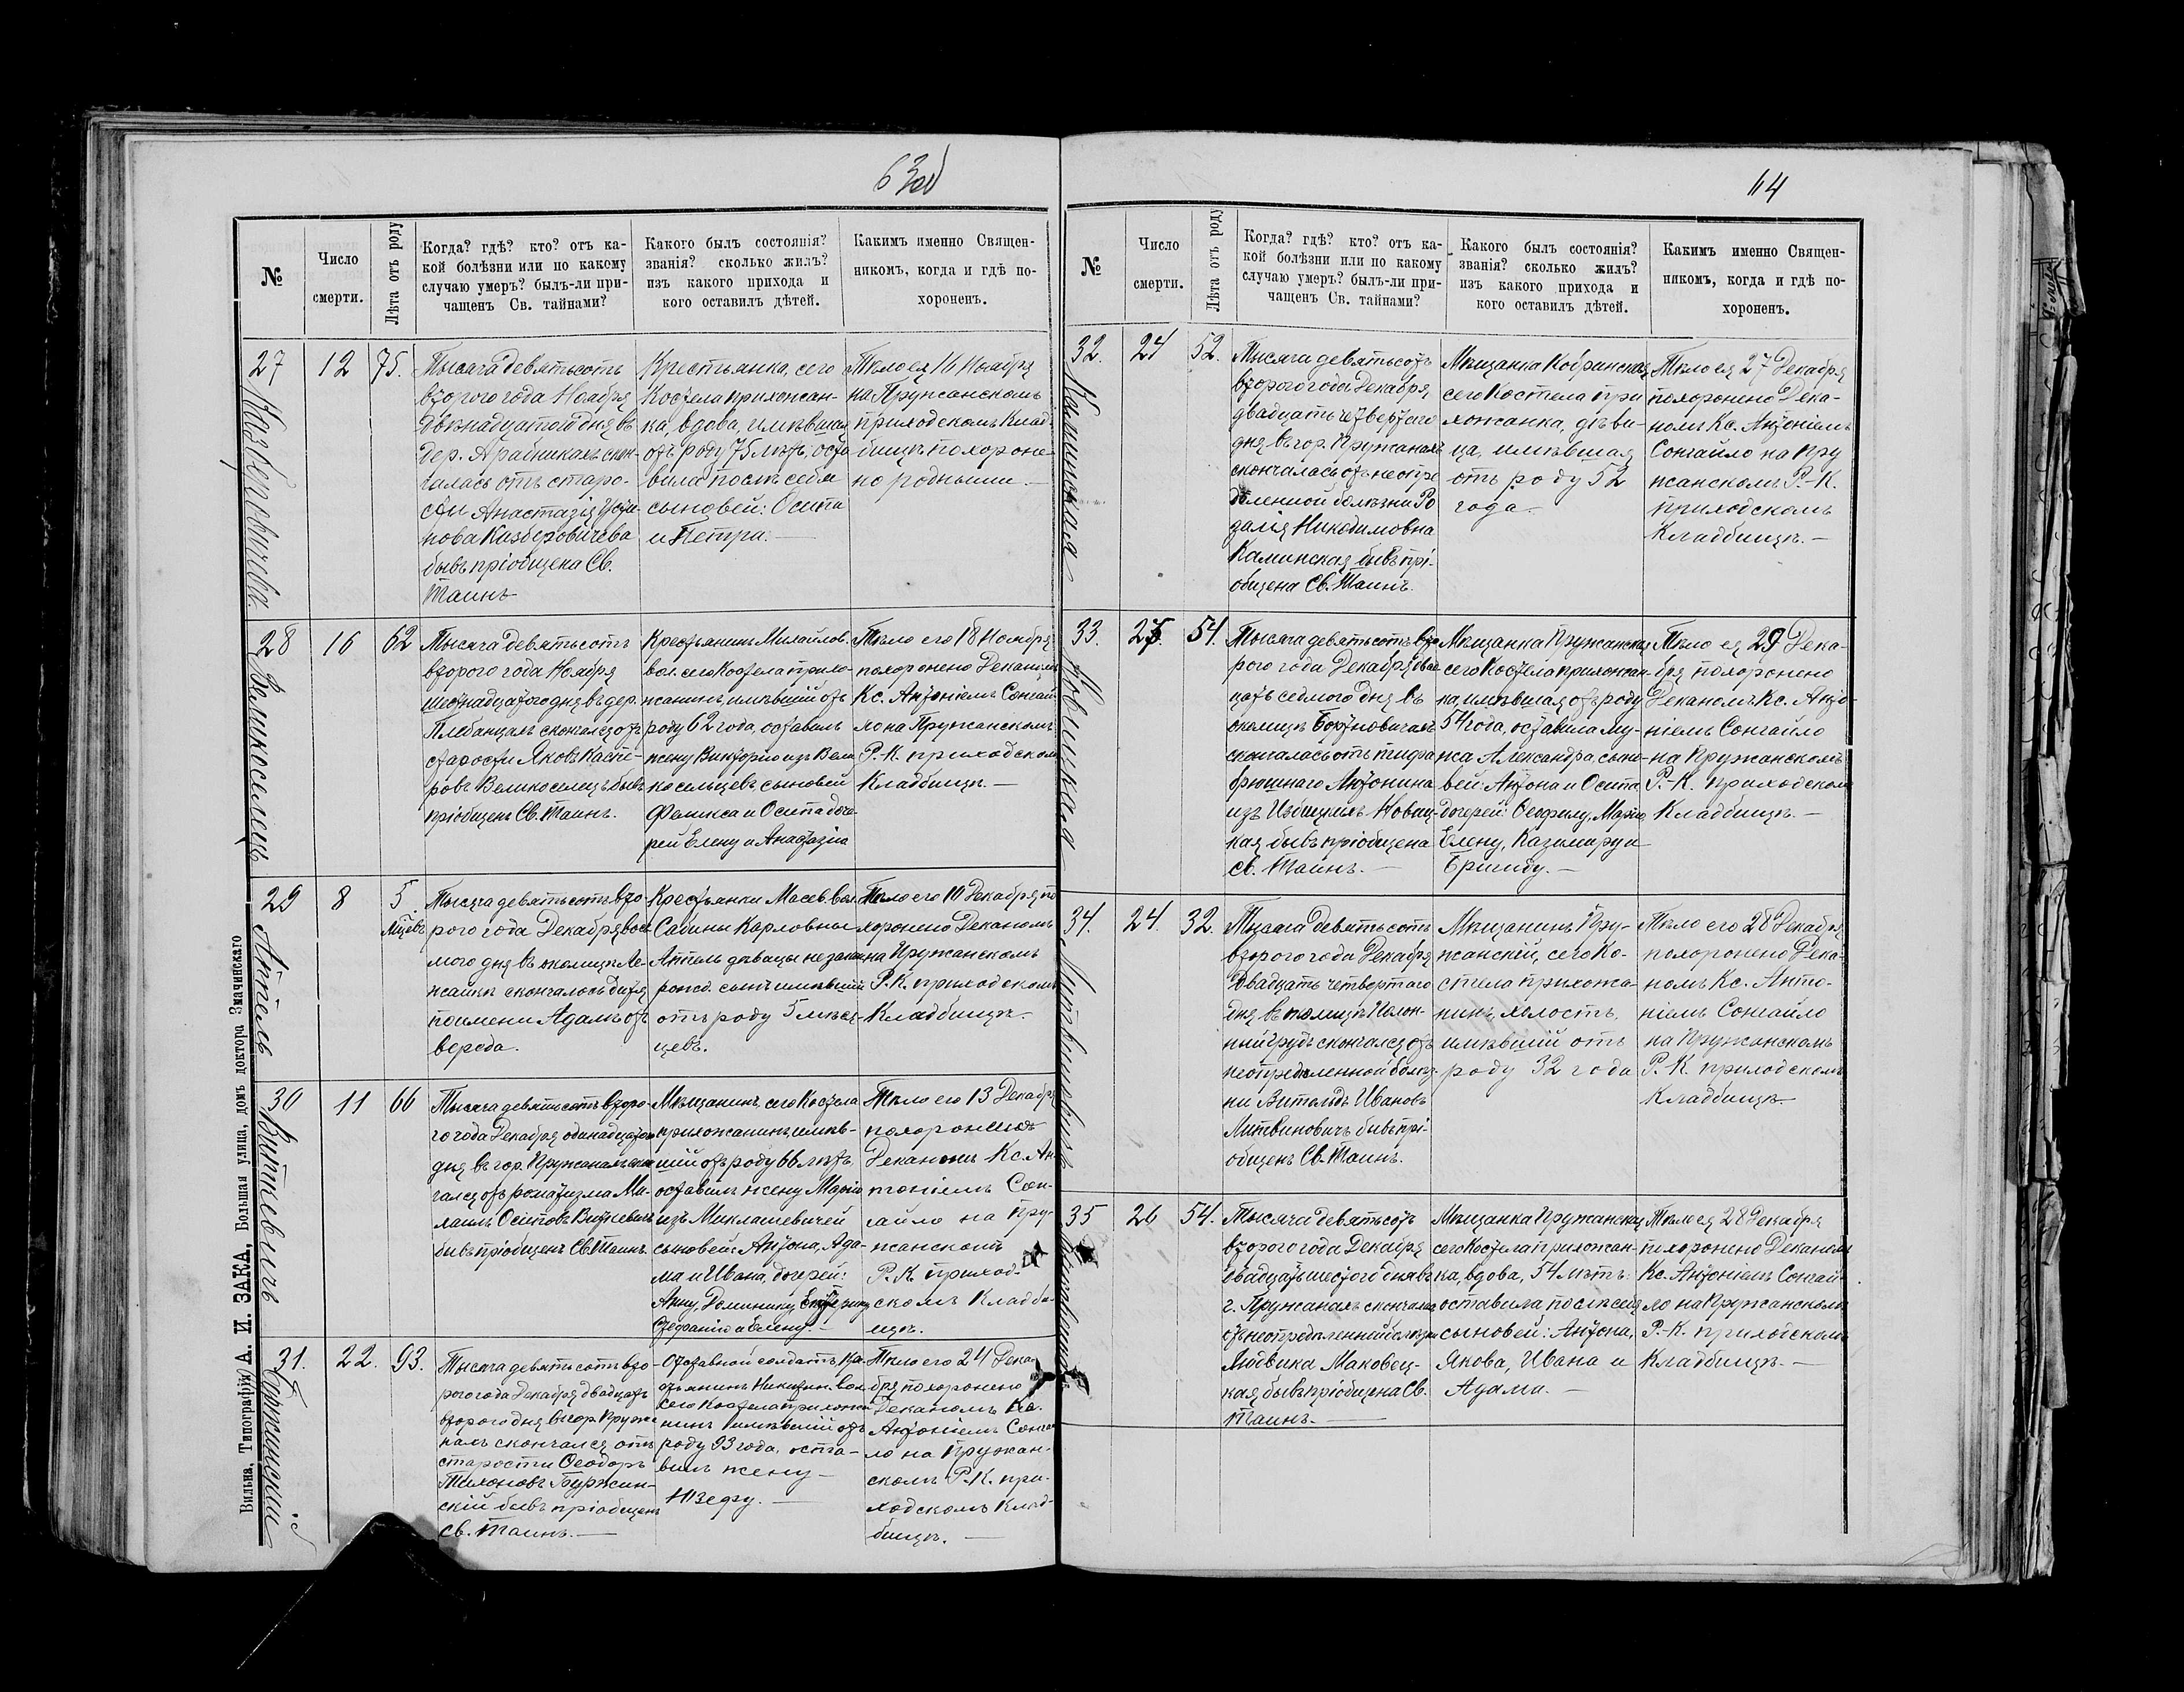 63об
№
Число
смерти.
Лѣта отъ роду
Когда? гдѣ? кто? отъ ка-
кой болѣзни или по какому
случаю умеръ? былъ-ли при-
чащенъ Св. тайнами?
Какого былъ состоянія?
званія? сколько жилъ?
изъ какого прихода и
кого оставилъ дѣтей.
Какимъ именно Священ-
никомъ, когда и гдѣ по-
хороненъ.
27
Казберовичева
12
75.
Тысяча девятьсотъ
второго года Ноября
двѣнадцатого дня въ
дер. Арабникахъ скон-
чалась отъ старо-
сти Анастазія
нова Казберовичева
бывъ пріобщена Св.
Таинъ
Крестьянка, сего
Костела прихожан-
ка, вдова, имѣвшая
отъ роду 75 лѣтъ, оста
вила послѣ себя
сыновей: Осипа
и Петра. —
Тѣло ея 16 Ноября
на Пружанскомъ
приходскомъ Клад-
бищѣ похороне-
но родными. —
28
Великоселецъ
16
62
Тысяча девятьсотъ
второго года Ноября
шестнадцатого дня въ дер.
Плебанцахъ скончался отъ
старости Яковъ Каспе-
ровъ Великоселецъ бывъ
пріобщенъ Св. Таинъ.
Крестьянинъ Михайлов.
вол. сего Костела прихо-
жанинъ, имѣвшій отъ
роду 62 года, оставилъ
жену Викторію изъ Вели
косельцевъ сыновей
Феликса и Осипа доче-
рей Елену и Анастазію
Тѣло его 18 Ноября
похоронено Деканомъ
Кс. Антоніемъ Сонгай-
ло на Пружанскомъ
Р. К. приходскомъ
Кладбищѣ. —
29
Аттель
8
5
мѣцевъ
Тысяча девятьсотъ вто-
рого года Декабря вось
мого дня въ околицѣ Ле-
жайкѣ скончалось дитя
по имени Адамъ отъ
вереда.
Крестьянки Масев. вол.
Сабины Карловны
Аттель дѣвицы незакон
рожд. сынъ имѣвшій
отъ роду 5 мѣся-
цевъ.
Тѣло его 10 Декабря по
хоронено Деканомъ
на Пружанскомъ
Р. К. приходскомъ
Кладбищѣ.
30
Виткевичъ
11
66
Тысяча девятьсотъ второ-
го года Декабря одинадцатого
дня въ гор. Пружанахъ скон
чался отъ роматизма Ми-
хаилъ Осиповъ Виткевичъ
бывъ пріобщенъ Св. Таинъ.
Мѣщанинъ, сего Костела
прихожанинъ, имѣв-
шій отъ роду 66 лѣтъ,
оставилъ жену Марію
изъ Миклашевичей
сыновей: Антона, Ада-
ма и Ивана, дочерей:
Анну, Доминику, Екатерину
Стефанію и Елену. —
Тѣло его 13 Декабря
похоронено
Деканомъ Кс. Ан
тоніемъ Сон-
гайло на Пру-
жанскомъ
Р. К. приход-
скомъ Кладби-
щѣ.
31.
Буржинскій
22.
93.
Тысяча девятьсотъ вто-
рого года Декабря двадцать
второго дня въ гор. Пружа
нахъ скончался отъ
старости Ѳеодоръ
Тихоновъ Буржин-
скій бывъ пріобщенъ
Св. Таинъ. —
Отставной солдатъ, кре-
стьянинъ вол.
сего Костела прихожа
нинъ имѣвшій отъ
роду 93 года, оста-
вилъ жену
Юзефу. —
Тѣло его 24 Дека-
бря похоронено
Деканомъ Кс.
Антоніемъ Сонгай
ло на Пружан-
скомъ Р. К. при-
ходскомъ Клад-
бищѣ. —
Вильна, Типографія А. И. ЗАКА, Большая улица, домъ доктора Змачинскаго
64
№
Число
смерти.
Лѣта отъ роду
Когда? гдѣ? кто? отъ ка-
кой болѣзни или по какому
случаю умеръ? былъ-ли при-
чащенъ Св. тайнами?
Какого былъ состоянія?
званія? сколько жилъ?
изъ какого прихода и
кого оставилъ дѣтей.
Какимъ именно Священ-
никомъ, когда и гдѣ по-
хороненъ.
32.
Каминская
24
52.
Тысяча девятьсотъ
второго года Декабря
двадцать четвертого
дня въ гор. Пружанахъ
скончалась отъ неопре
дѣленной болѣзни Ро
залія Никодимовна
Каминская бывъ прі-
общена Св. Таинъ.
Мѣщанка Кобринская
сего Костела при
хожанка, дѣви-
ца, имѣвшая
отъ роду 52
года. —
Тѣло ея 27 Декабря
похоронено Дека-
номъ Кс. Антоніемъ
Сонгайло на Пру
жанскомъ Р.-К.
приходскомъ
Кладбищѣ. —
33.
Новицкая
54.
Тысяча девятьсотъ вто
рого года Декабря два
цать седмого дня въ
околицѣ Бортновичахъ
скончалась отъ тифа
брюшнаго Антонина
изъ Новиц-
кая бывъ пріобщена
Св. Таинъ. —
Мѣщанка Пружанская
сего Костела прихожан-
ка, имѣвшая отъ роду
54 года, оставила му-
жа Александра, сыно-
вей: Антона и Осипа,
дочерей: Ѳеофилу, Марію
Елену, Казимиру и
Бригиду. —
Тѣло ея 29 Дека-
бря похоронено
Деканомъ Кс. Анто-
ніемъ Сонгайло
на Пружанскомъ
Р.-К. приходскомъ
Кладбищѣ. —
34.
Литвиновичъ
24.
32.
Тысяча девятьсотъ
второго года Декабря
двадцать четвертаго
дня въ околицѣ
скончался отъ
неопредѣленной болѣз-
ни Витольдъ Ивановъ
Литвиновичъ бывъ прі-
общенъ Св. Таинъ.
Мѣщанинъ Пру-
жанскій, сего Ко-
стела прихожа-
нинъ, холостъ,
имѣвшій отъ
роду 32 года
Тѣло его 28 Декабря
похоронено Дека-
номъ Кс. Анто-
ніемъ Сонгайло
на Пружанскомъ
Р. К. приходскомъ
Кладбищѣ.
35
26
54.
Тысяча девятьсотъ
второго года Декабря
двадцать шестого дня въ
г. Пружанахъ скончалась
отъ неопредѣленной болѣзни
Людвика Маковец-
кая, бывъ пріобщена Св.
Таинъ. —
Мѣщанка Пружанская
сего Костела прихожан-
ка, вдова, 54 лѣтъ:
оставила послѣ себя
сыновей: Антона,
Якова, Ивана и
Адама. —
Тѣло ея 28 Декабря
похоронено Деканомъ
Кс. Антоніемъ Сонгай-
ло на Пружанскомъ
Р.-К. приходскомъ
Кладбищѣ. —